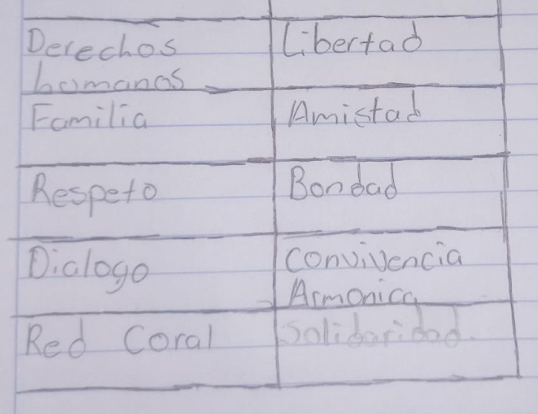 Derechos
humanos
Libertad
Familia
Amistad
Respeto
Bondad
Dialogo
Convivencia
Armonica
Red Coral
Solidaridad.